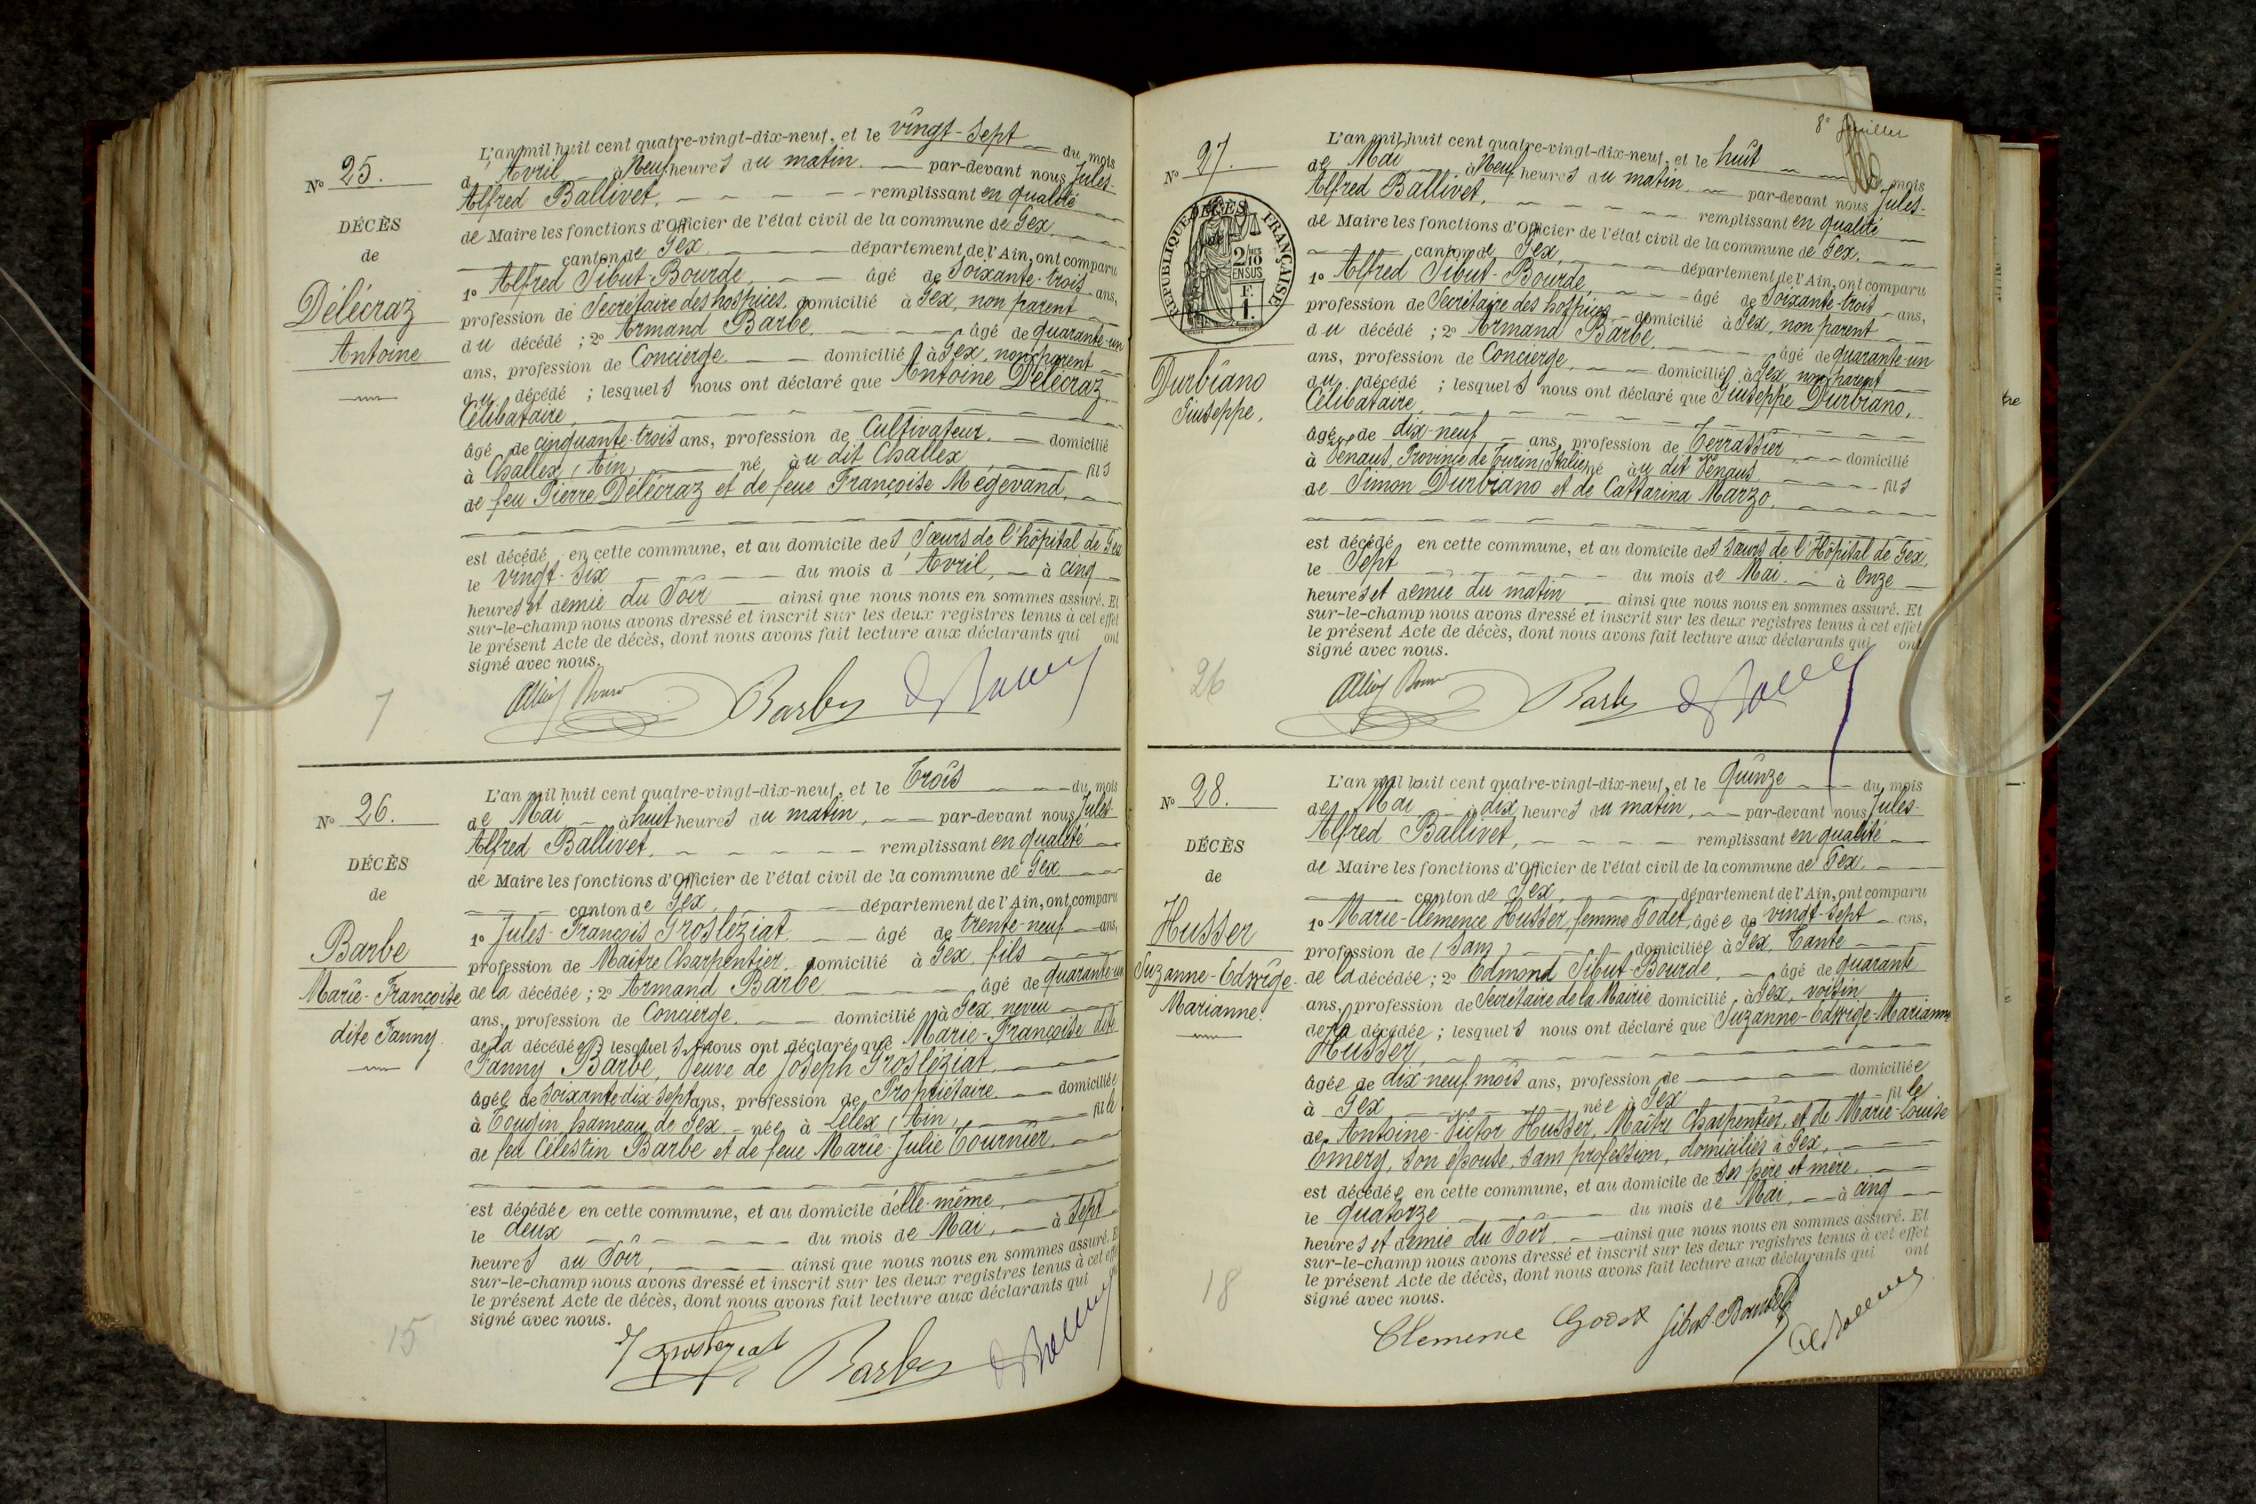 N° 25.
DÉCÈS
de
Délécraz
Antoine
L'an mil huit cent quatre-vingt-dix-neuf, et le vingt-sept du mois
d'Avril à Neuf heures du matin. par-devant nous Jules-
Alfred Ballivet, remplissant en qualité
de Maire les fonctions d'Officier de l'état civil de la commune de Gex,
canton de Gex département de l'Ain, ont comparu
1° Alfred Sibut-Bourde, âgé de Soixante-trois ans,
profession de Secrétaire des hospices, domicilié à Gex, non parent
du décédé ; 2° Armand Barbe, âgé de quarante-un
ans, profession de Concierge domicilié à Gex, non parent
du décédé ; lesquels nous ont déclaré que Antoine Délécraz
Célibataire,
âgé de cinquante-trois ans, profession de Cultivateur. domicilié
à Challex (Ain) né au dit Challex, fils
de feu Pierre Délécraz et de feue Françoise Mégevand,
est décédé en cette commune, et au domicile des Sœurs de l'hôpital de Gex
le vingt-six du mois d'Avril, à cinq
heures et demie du Soir ainsi que nous nous en sommes assuré. Et
sur-le-champ nous avons dressé et inscrit sur les deux registres tenus à cet effet
le présent Acte de décès, dont nous avons fait lecture aux déclarants qui ont
signé avec nous.
7
Barbe
N° 26.
DÉCÈS
de
Barbe
Marie-Françoise
dite Fanny
L'an mil huit cent quatre-vingt-dix-neuf, et le Trois du mois
de Mai à huit heures du matin, par-devant nous Jules-
Alfred Ballivet, remplissant en qualité
de Maire les fonctions d'Officier de l'état civil de la commune de Gex
canton de Gex, département de l'Ain, ont comparu
1° Jules-François Grosléziat âgé de trente-neuf ans,
profession de Maître Charpentier, domicilié à Gex, fils
de la décédée ; 2° Armand Barbe âgé de quarante-un
ans, profession de Concierge domicilié à Gex, neveu
de la décédée ; lesquels nous ont déclaré que Marie-Françoise dite
Fanny Barbe, Veuve de Joseph Grosléziat,
âgée de Soixante-dix-sept ans, profession de Propriétaire domiciliée
à Tougin hameau de Gex née à Lélex (Ain), fille
de feu Célestin Barbe et de feue Marie-Julie Tournier,
est décédée en cette commune, et au domicile d'elle-même,
le deux du mois de Mai, à Sept
heures du Soir, ainsi que nous nous en sommes assuré. Et
sur-le-champ nous avons dressé et inscrit sur les deux registres tenus à cet effet
le présent Acte de décès, dont nous avons fait lecture aux déclarants qui
signé avec nous.
15
Barbe
8e feuillet
N° 27.
DÉCÈS
RÉPUBLIQUE FRANÇAISE
2/10
EN SUS
F.
1.
Durbiano
Giuseppe,
L'an mil huit cent quatre-vingt-dix-neuf, et le huit mois
de Mai à Neuf heures du matin par-devant nous Jules-
Alfred Ballivet, remplissant en qualité
de Maire les fonctions d'Officier de l'état civil de la commune de Gex,
canton de Gex, département de l'Ain, ont comparu
1° Alfred Sibut-Bourde, âgé de Soixante-trois ans,
profession de Secrétaire des hospices domicilié à Gex, non parent
du décédé ; 2° Armand Barbe, âgé de quarante-un
ans, profession de Concierge, domicilié à Gex non parent
du décédé ; lesquels nous ont déclaré que Giuseppe Durbiano,
Célibataire,
âgé de dix-neuf ans, profession de Terrassier domicilié
à Vénaus, Province de Turin, Italie né au dit Vénaus fils
de Simon Durbiano et de Cattarina Marzo,
est décédé en cette commune, et au domicile des sœurs de l'Hôpital de Gex,
le Sept du mois de Mai à Onze
heures et demie du matin ainsi que nous nous en sommes assuré. Et
sur-le-champ nous avons dressé et inscrit sur les deux registres tenus à cet effet
le présent Acte de décès, dont nous avons fait lecture aux déclarants qui ont
signé avec nous.
26
Barbe
N° 28.
DÉCÈS
de
Husser
Suzanne-Edwige-
Marianne.
L'an mil huit cent quatre-vingt-dix-neuf, et le Quinze du mois
de Mai à dix heures du matin, par-devant nous Jules-
Alfred Ballivet, remplissant en qualité
de Maire les fonctions d'Officier de l'état civil de la commune de Gex
canton de Gex, département de l'Ain, ont comparu
1° Marie-Clémence Husser, femme Godet, âgée de vingt-sept ans,
profession de (sans) domiciliée à Gex, Tante
de la décédée ; 2° Edmond Sibut-Bourde, âgé de quarante
ans, profession de Secrétaire de la Mairie domicilié à Gex, voisin
de la décédée ; lesquels nous ont déclaré que Suzanne-Edwige-Marianne
Husser,
âgée de dix-neuf mois ans, profession de domiciliée
à Gex née à Gex fille
de Antoine-Victor Husser, Maître Charpentier, et de Marie-Louise
Emery, son épouse, sans profession, domiciliés à Gex,
est décédée en cette commune, et au domicile de ses père et mère
le quatorze du mois de Mai, à cinq
heures et demie du Soir ainsi que nous nous en sommes assuré. Et
sur-le-champ nous avons dressé et inscrit sur les deux registres tenus à cet effet
le présent Acte de décès, dont nous avons fait lecture aux déclarants qui ont
signé avec nous.
18
Clemence Godet Sibut-Bourde